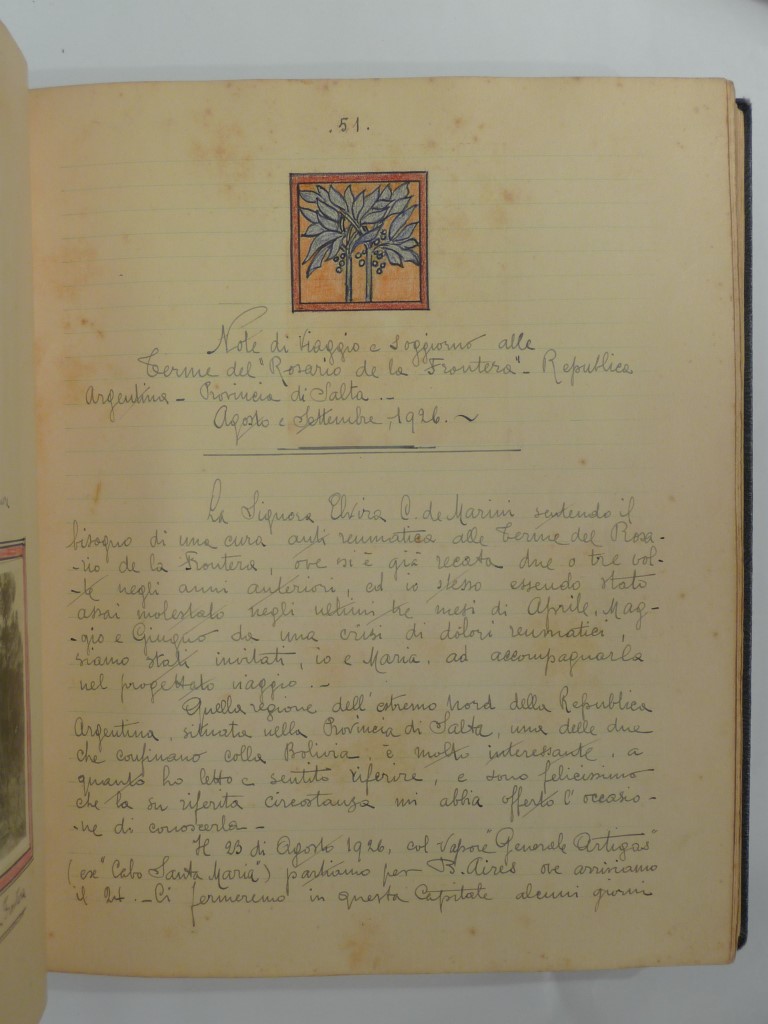 .51.
Note di Viaggio e soggiorno alle
Terme del "Rosario de la Frontera" - Republica
Argentina - Provincia di Salta . -
Agosto e Settembre, 1926. ~
La Signora Elvira C. de Marini sentendo il
bisogno di una cura anti reumatica alle Terme del Rosa-
-rio de la Frontera, ove si è già recata due o tre vol-
-te negli anni anteriori, ed io stesso essendo stato
assai molestato negli ultimi tre mesi di Aprile, Mag-
-gio e Giugno da una crisi di dolori reumatici,
siamo stati invitati, io e Maria, ad accompagnarla
nel progettato viaggio . -
Quella regione dell'estremo Nord della Republica
Argentina, situata nella Provincia di Salta, una delle due
che confinano colla Bolivia, è molto interessante, a
quanto ho letto e sentito riferire, e sono felicissimo
che la su riferita circostanza mi abbia offerto l'occasio-
-ne di conoscerla -
Il 23 di Agosto 1926, col Vapore "Generale Artigas"
(ex "Cabo Santa Maria") partiamo per B. Aires ove arriviamo
il 24. - Ci fermeremo in questa Capitale alcuni giorni